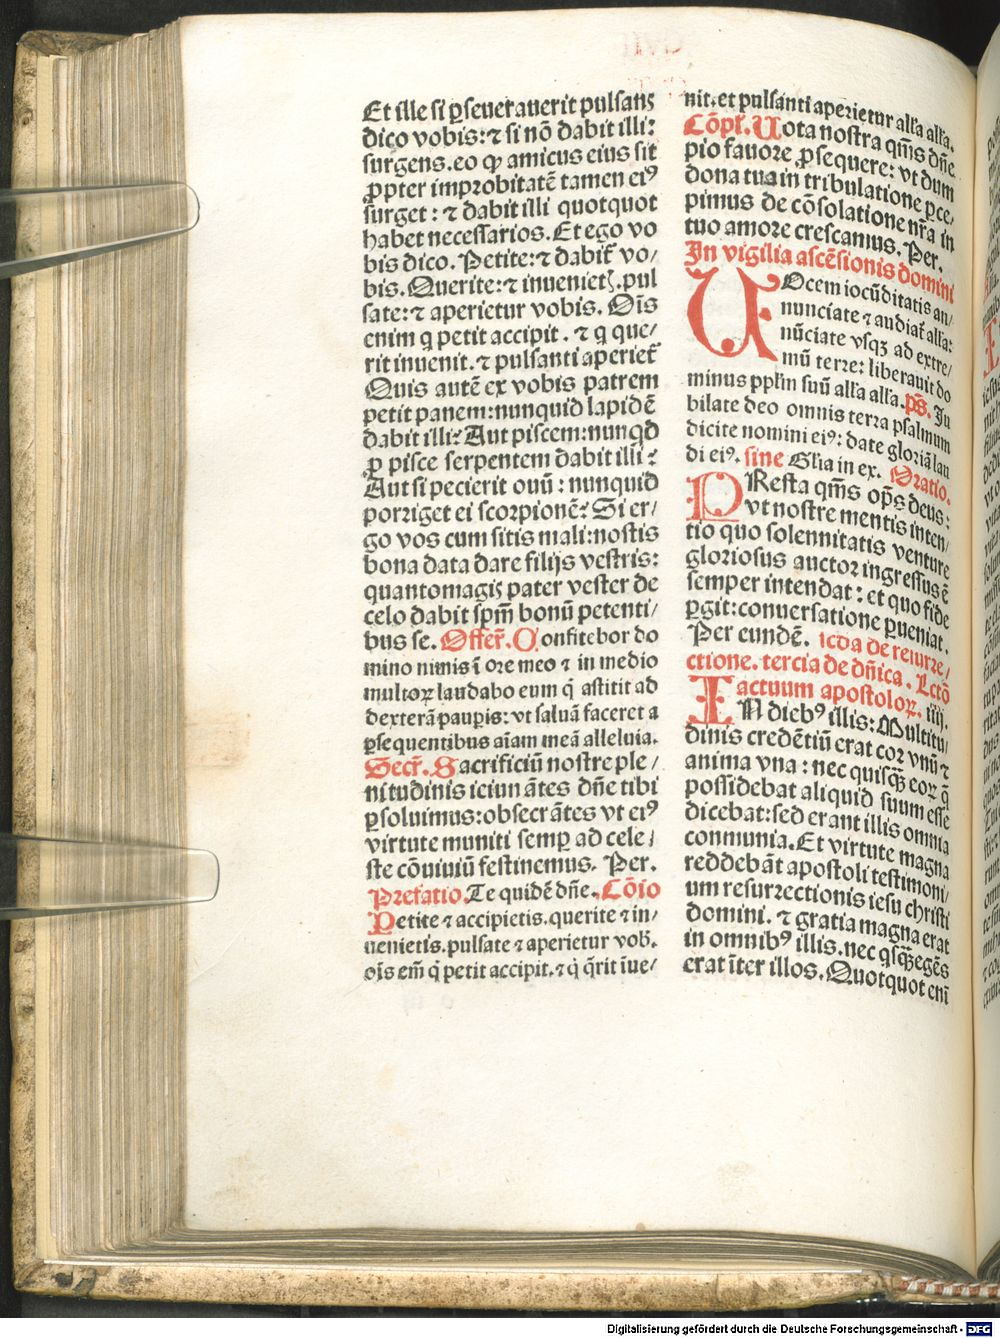 Et ille si ꝑseuerauerit pulsans
dico vobis: ⁊ si nō dabit illi:
surgens. eo ꝙ amicus eius sit
ꝓpter improbitatē tamen eiꝰ
surget: ⁊ dabit illi quotquot
habet necessarios. Et ego vo
bis dico. Petite: ⁊ dabit᷑ vo/
bis. Querite: ⁊ inuenietꝭ. pul
sate: ⁊ aperietur vobis. Oīs
enim q petit accipit. ⁊ q que/
rit inuenit. ⁊ pulsanti aperiet᷑
Quis autē ex vobis patrem
petit panem: nunquid lapidē
dabit illi? Aut piscem: nunqd
ꝓ pisce serpentem dabit illi?
Aut si pecierit ouū: nunquid
porriget ei scorpionē? Si er/
go vos cum sitis mali: nostis
bona data dare filijs vestris:
quantomagis pater vester de
celo dabit spm̄ bonū petenti/
bus se. Offer̄. Confitebor do
mino nimis ī ore meo ⁊ in medio
multoꝝ laudabo eum q̄ astitit ad
dexterā pauꝑis: vt saluā faceret a
ꝑsequentibus aīam meā alleluia.
Secr̄. Sacrificiū nostre ple/
nitudinis ieiunātes dn̄e tibi
ꝑsoluimus: obsecrātes vt eiꝰ
virtute muniti semꝑ ad cele/
ste cōuiuiū festinemus. Per.
Prefatio. Te quidē dn̄e. Cōio
Petite ⁊ accipietis. querite ⁊ in/
uenietis. pulsate ⁊ aperietur vob̄.
oīs em̄ q̄ petit accipit. ⁊ q̄ q̄rit īue/
nit. et pulsanti aperietur all'a all'a.
Cōpl̄. Uota nostra qm̄s dn̄e
pio fauore ꝓsequere: vt dum
dona tua in tribulatione ꝑce/
pimus de cōsolatione nr̄a in
tuo amore crescamus. Per.
In vigilia ascēsionis domini
UOcem iocūditatis an/
nunciate ⁊ audiat᷑ all'a:
nūciate vsqꝫ ad extre/
mū terre: liberauit do
minus ppl'm suū all'a all'a. ps̄. Ju
bilate deo omnis terra psalmum
dicite nomini eiꝰ: date gloriā lau
di eiꝰ. sine Gl'ia in ex. Oratio.
PResta qm̄s op̄s deus:
vt nostre mentis inten/
tio quo solennitatis venture
gloriosus auctor ingressus ē
semper intendat: et quo fide
ꝑgit: conuersatione ꝑueniat.
Per eundē. Icda de resurre/
ctione. tercia de dn̄ica. Lctō
actuum apostoloꝝ. iiij.
IN diebꝰ illis: Multitu/
dinis credētiū erat cor vnū ⁊
anima vna: nec quisqꝫ eoꝝ q̄
possidebat aliquid suum esse
dicebat: sed erant illis omnia
communia. Et virtute magna
reddebāt apostoli testimoni/
um resurrectionis iesu christi
domini. ⁊ gratia magna erat
in omnibꝰ illis. nec qsqꝫ egēs
erat īter illos. Quotquot enī
Digitalisierung gefördert durch die Deutsche Forschungsgemeinschaft - DFG